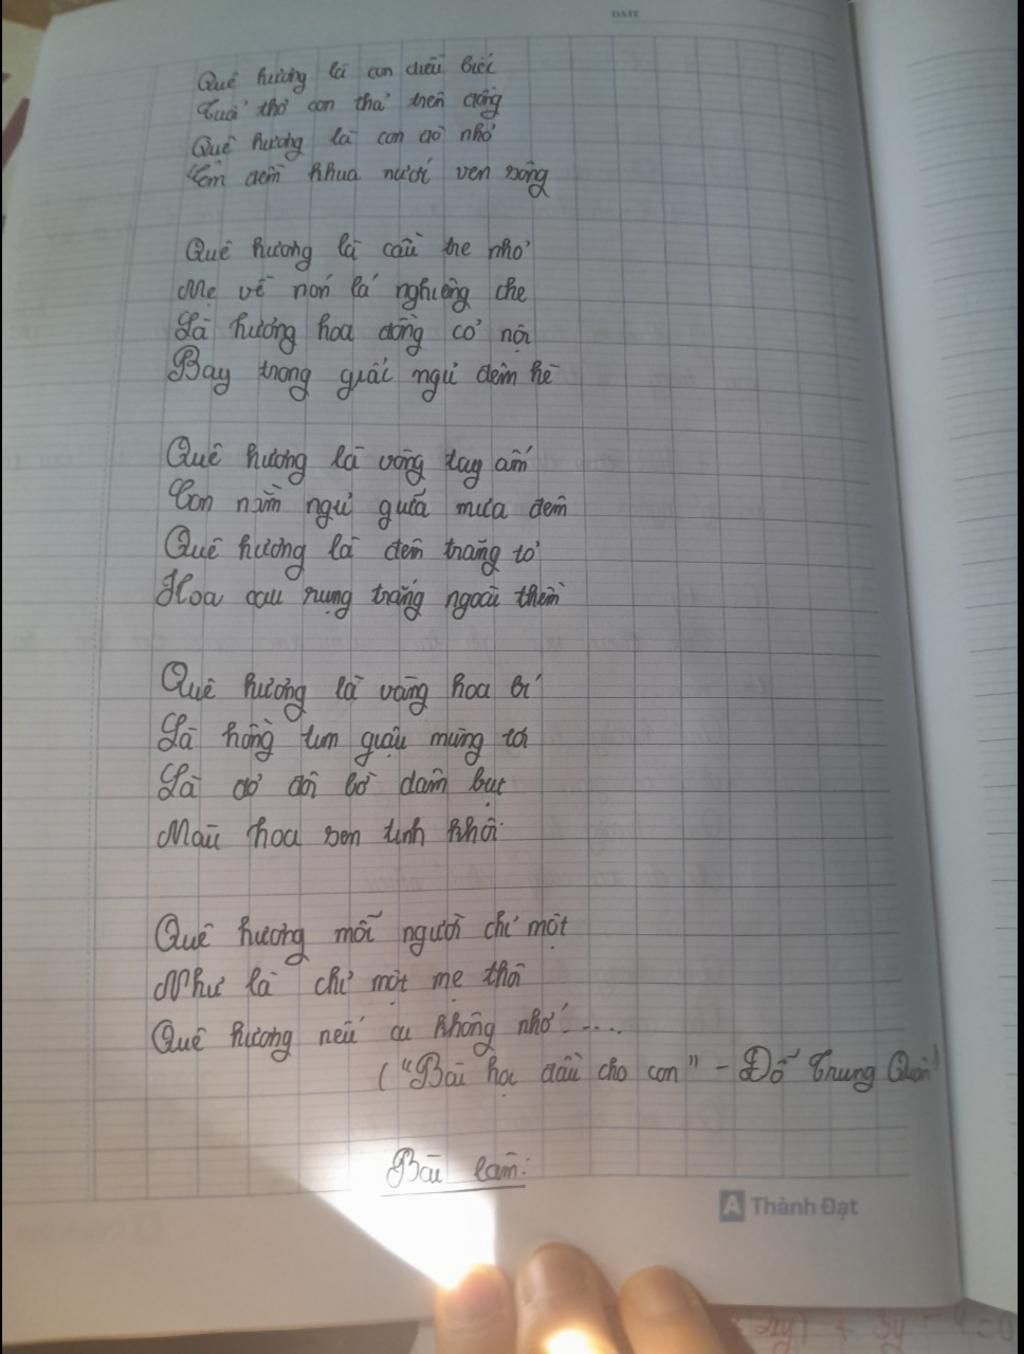 DATE
Quê hương là con diều biếc
Tuổi thơ con thả trên đồng
Quê hương là con đò nhỏ
Êm đềm khua nước ven sông
Quê hương là cầu tre nhỏ
Mẹ về nón lá nghiêng che
Là hương hoa đồng cỏ nội
Bay trong giấc ngủ đêm hè
Quê hương là vòng tay ấm
Con nằm ngủ giữa mưa đêm
Quê hương là đêm trăng tỏ
Hoa cau rụng trắng ngoài thềm
Quê hương là vàng hoa bí
Là hồng tím giậu mùng tơi
Là đỏ đôi bờ dâm bụt
Màu hoa sen tinh khôi
Quê hương mỗi người chỉ một
Như là chỉ một mẹ thôi
Quê hương nếu ai không nhớ....
("Bài học đầu cho con" - Đỗ Trung Quân)
Bài làm:
A Thành Đạt